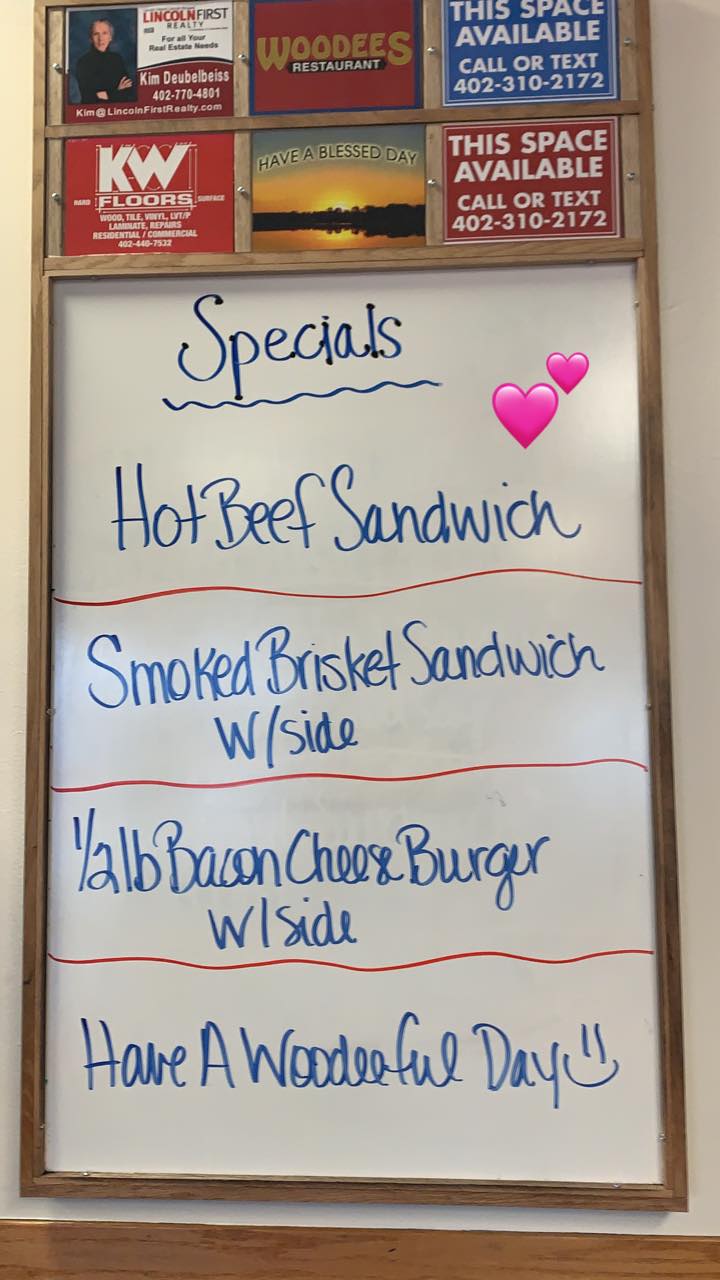 LINCOLN FIRST
REALTY
For all Your
Real Estate Needs
Kim Deubelbeiss
402-770-4801
Kim@LincolnFirstRealty.com
WOODEES
RESTAURANT
THIS SPACE
AVAILABLE
CALL OR TEXT
402-310-2172
KW
HARD FLOORS SURFACE
WOOD, TILE, VINYL, LVT/P
LAMINATE, REPAIRS
RESIDENTIAL / COMMERCIAL
402-440-7532
HAVE A BLESSED DAY
THIS SPACE
AVAILABLE
CALL OR TEXT
402-310-2172
Specials
Hot Beef Sandwich
Smoked Brisket Sandwich
W/side
1/2 lb Bacon Cheese Burger
W/side
Have A Woodeeful Day